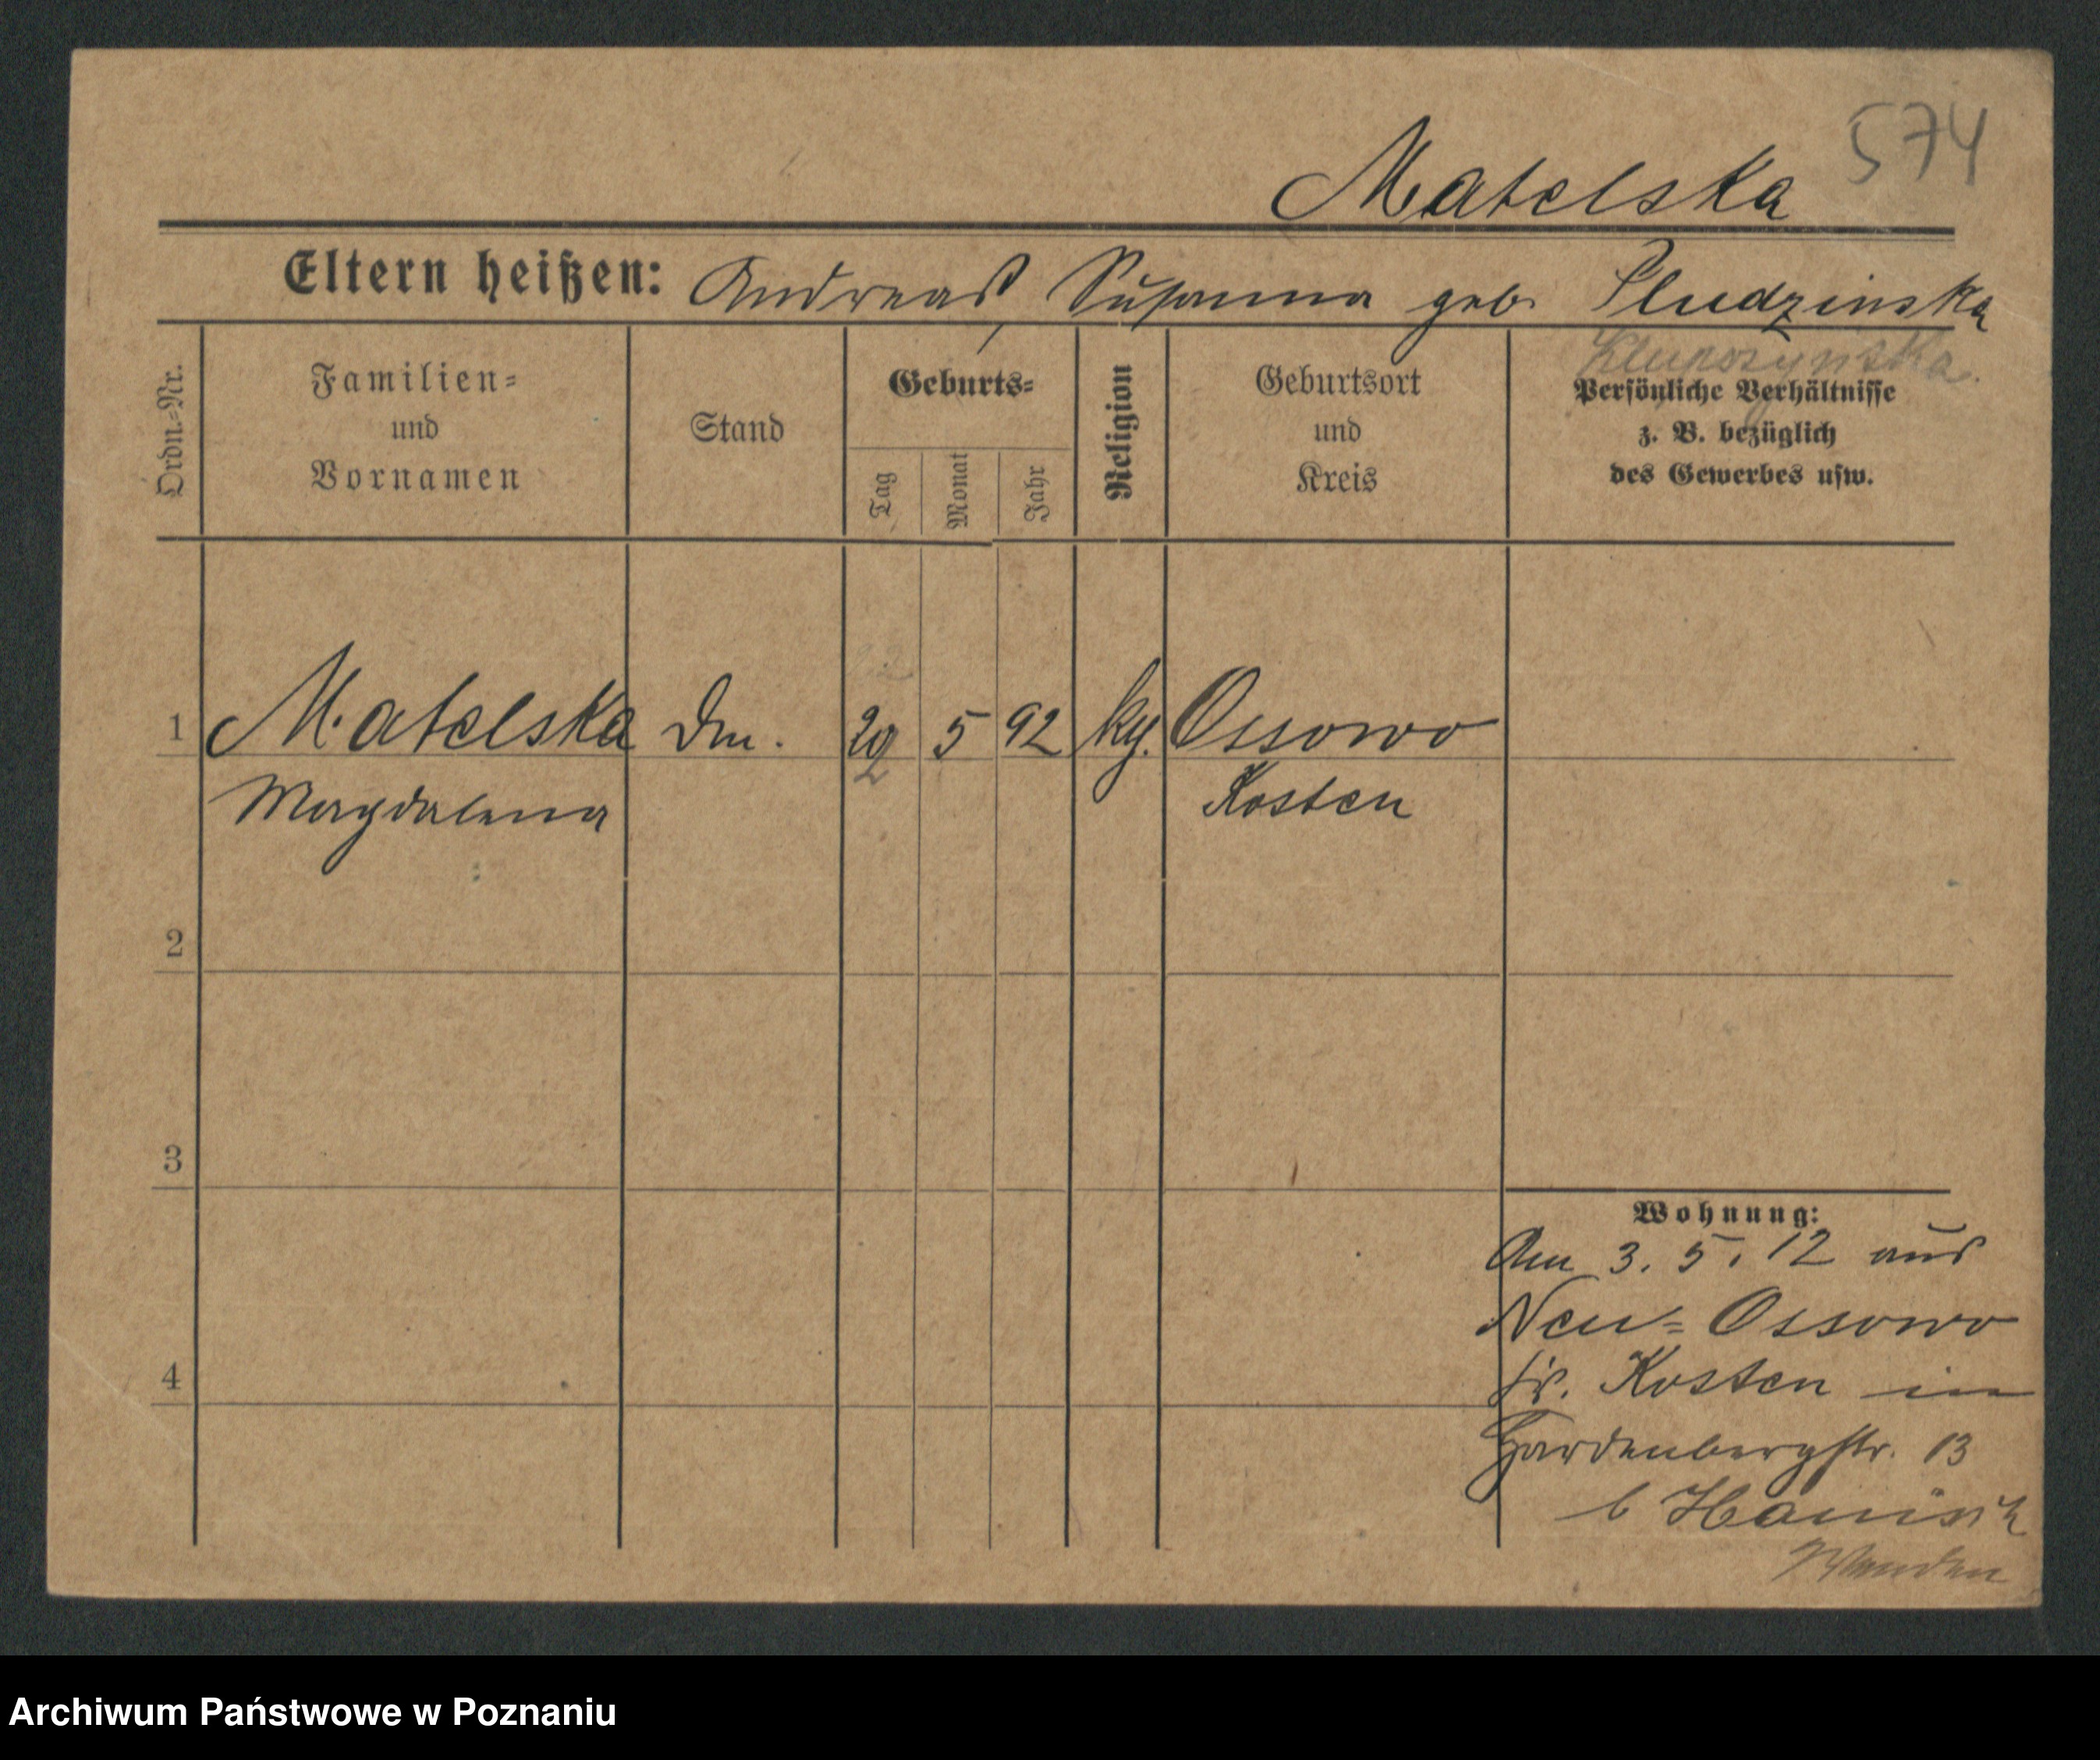 574
Matelska
Eltern heißen: Andreas, Susanna geb. Pludzinska
Ordn.=Nr.
Familien=
und
Vornamen
Stand
Geburts=
Tag
Monat
Jahr
Religion
Geburtsort
und
Kreis
Persönliche Verhältnisse
z. B. bezüglich
des Gewerbes usw.
1 Matelska Dm. 5 92 kg. Ossowo
Magdalena Kosten
2
3
4
Wohnung:
Am 3. 5. 12 aus
Neu=Ossowo
Kr. Kosten in
Hardenbergstr. 13
b Hanisch
Archiwum Państwowe w Poznaniu